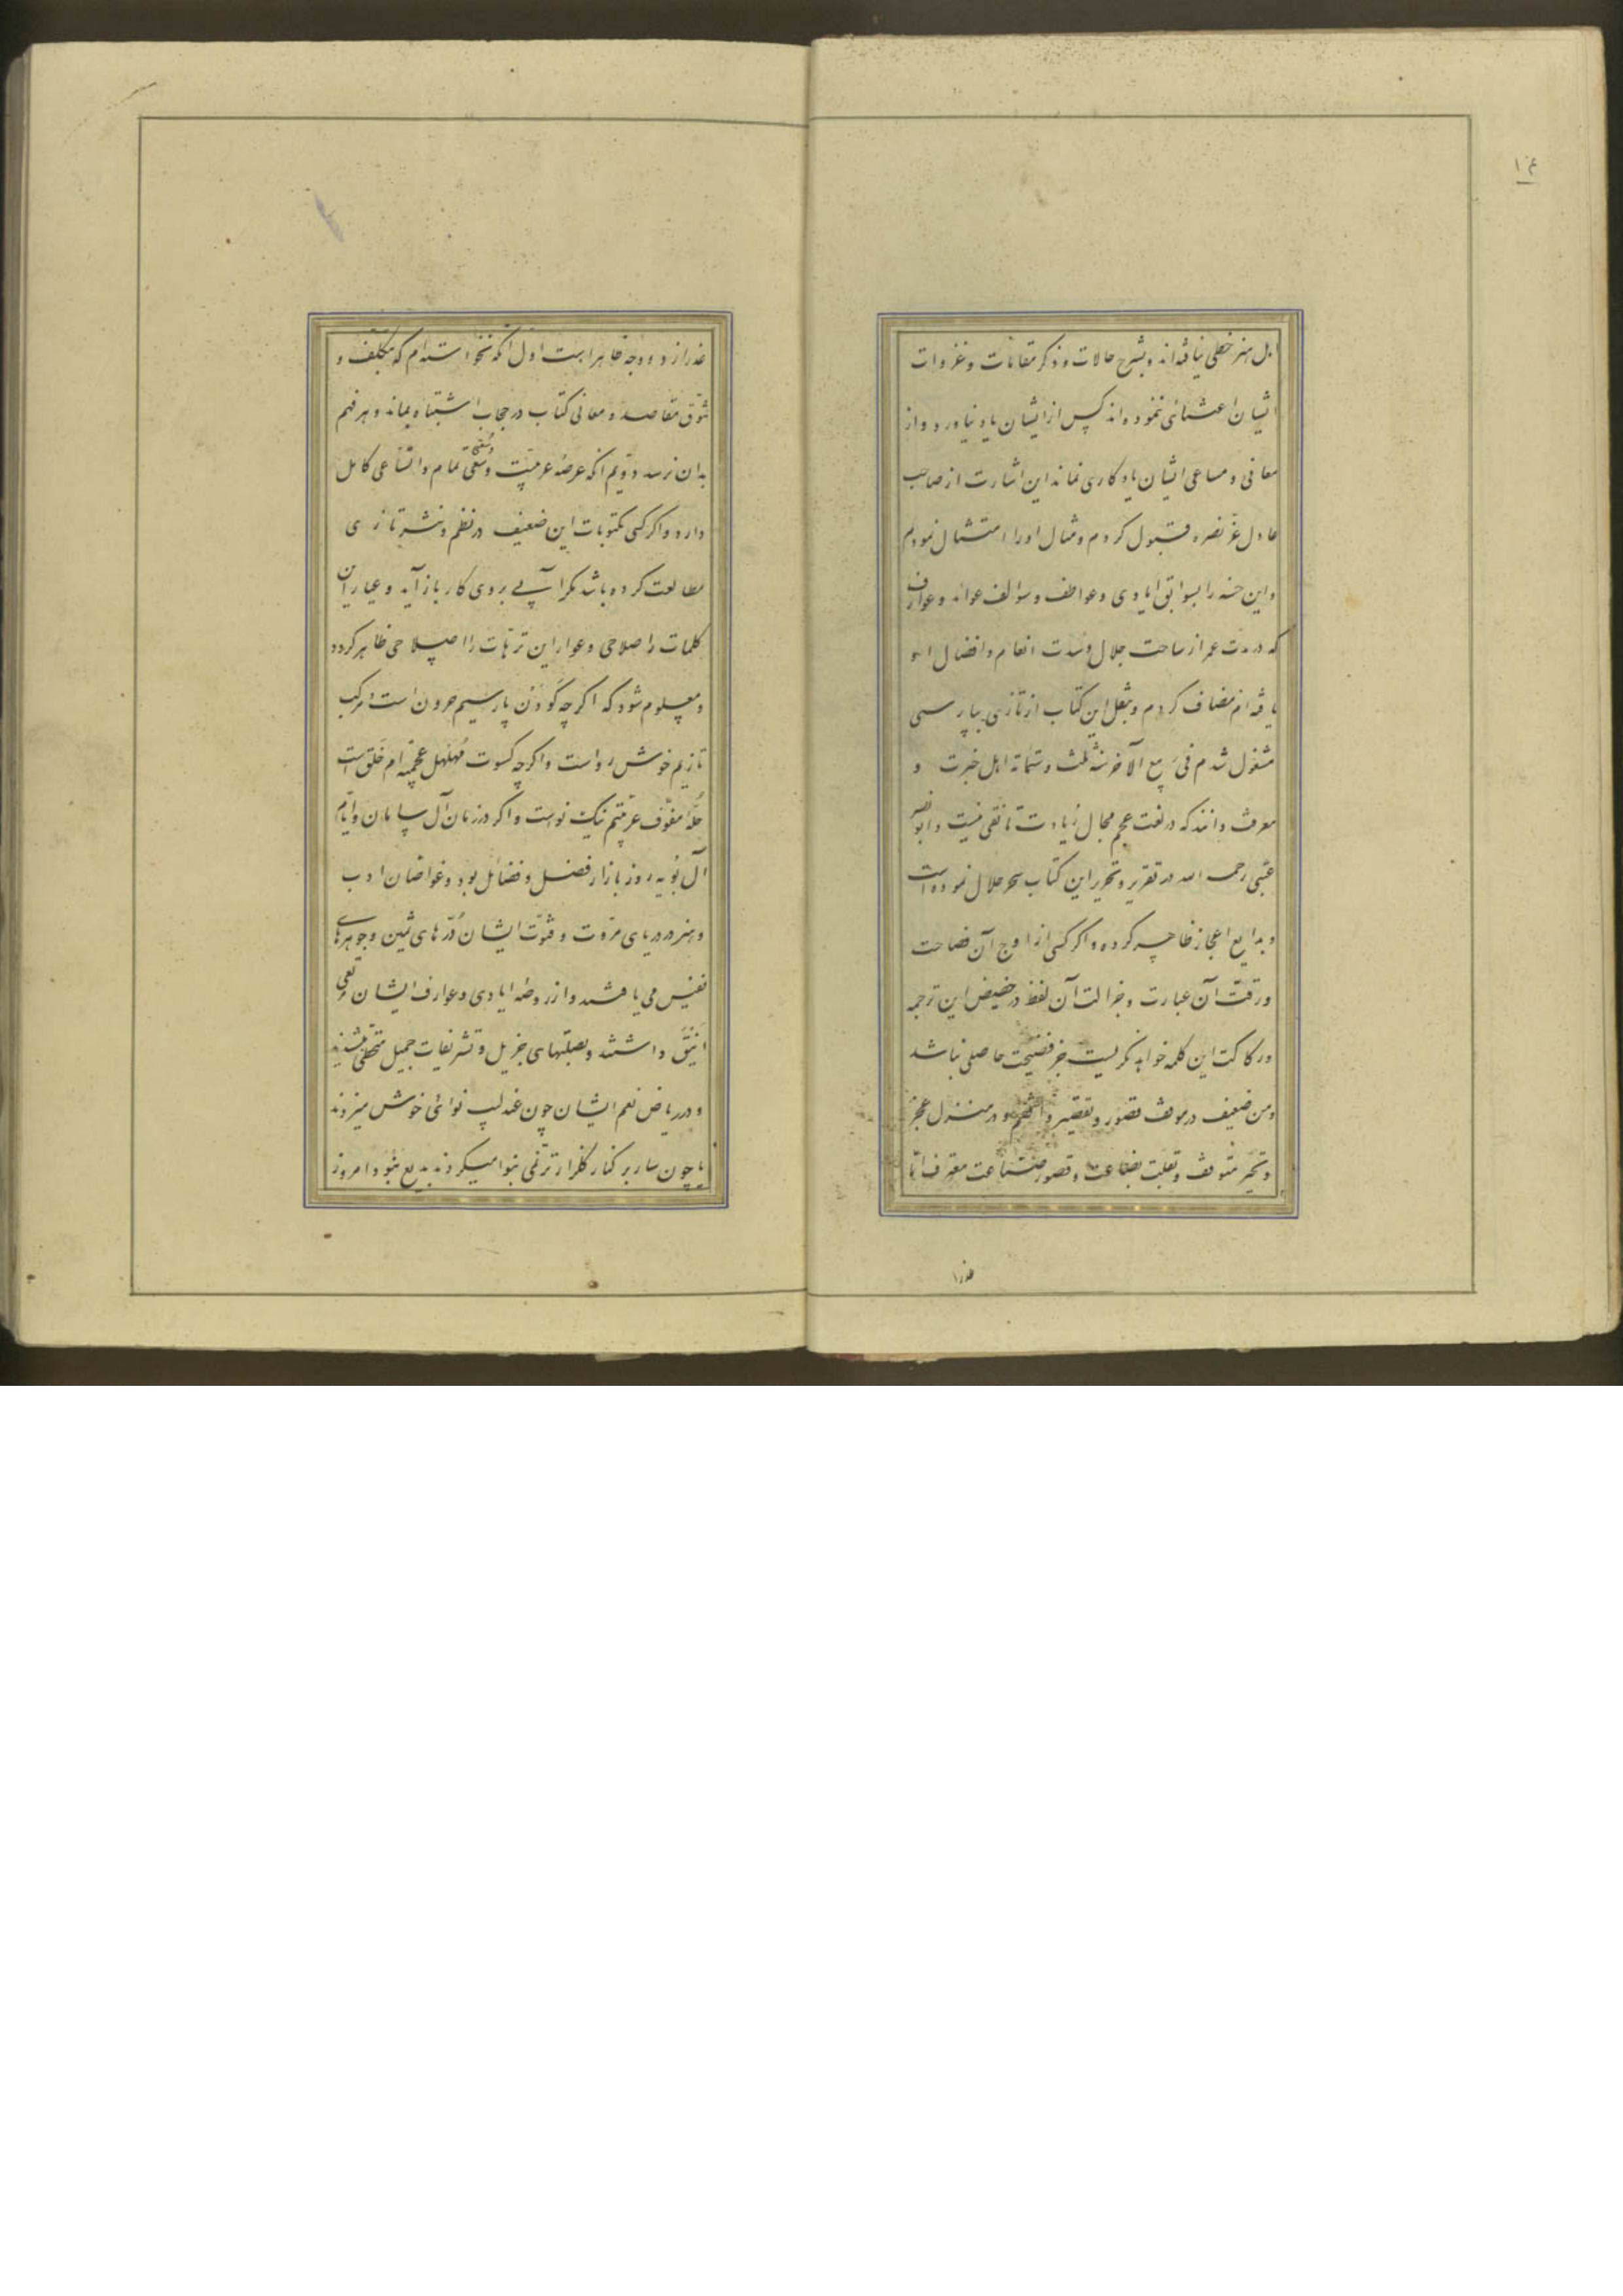 ۱۴
اهل هنر حظی نیافته‌اند و بشرح حالات و ذکر مقامات و غزوات
ایشان اعتنائی ننموده‌اند کس از ایشان یاد نیاورد و از
معانی و مساعی ایشان یادکاری نماند این اشارت از صاحب
عادل عزّ نصره قبول کردم و مثال او را امتثال نمودم
و این حسنه را بسوابق ایادی و عواطف و سوالف عواید و عوارف
که در مدت عمر از ساحت جلال و سدت انعام و افضال او
یافته‌ام مضاف کردم و بنقل این کتاب از تازی بپارسی
مشغول شدم فی ربیع الآخر سنة ثلث و ستمائة اهل خبرت و
معرفت دانند که در لغت عجم مجال زیادت تانقی نیست و ابو نصر
عتبی رحمه الله در تقریر و تحریر این کتاب سحر حلال نموده است
و بدایع اعجاز ظاهر کرده و اکر کسی از اوج آن فصاحت
و رقت آن عبارت و جزالت آن لفظ در حضیض این ترجمه
و رکاکت این کلمه خواهد نکریست جز فضیحت حاصلی نباشد
و من ضعیف در موقف قصور و تقصیر واقفم و در منزل عجز
و تحیر متوقف و بقلت بضاعت و قصور صناعت معترف اما
عذر از
عذر از دو وجه ظاهر است اول آنکه نخواسته‌ام که بتکلف و
تنوق مقاصد و معانی کتاب در حجاب اشتباه بماند و هر فهم
بدان نرسد دویم آنکه عرصهٔ عربیت وسعتی تمام و اتساعی کامل
دارد و اکر کسی مکتوبات این ضعیف در نظم و نثر تازی
مطالعت کرده باشد مکر آبی بروی کار باز آید و عیار این
کلمات را صلاحی و عوار این ترهات را اصلاحی ظاهر کردد
و معلوم شود که اکرچه کودن پارسیم حرون است مرکب
تازیم خوش رو است و اکرچه کسوت مهلهل عجمیه‌ام خلق است
حلهٔ مفوف عربیتم نیک نو است و اکر در زمان آل سامان و ایام
آل بویه روز بازار فضل و فضائل بود و غواصان ادب
و هنر در دریای مروت و فتوت ایشان دُرّهای ثمین و جوهرهای
نفیس می یافتند و از روضه ایادی و عوارف ایشان مرتعی
انیق داشتند و بصلتهای جزیل و تشریفات جمیل متحلی میشدند
و در ریاض نعم ایشان چون عندلیب نوائی خوش میزدند
یا چون سار بر کنار کلزار ترنمی بنوا میکردند بدیع نبود امروز